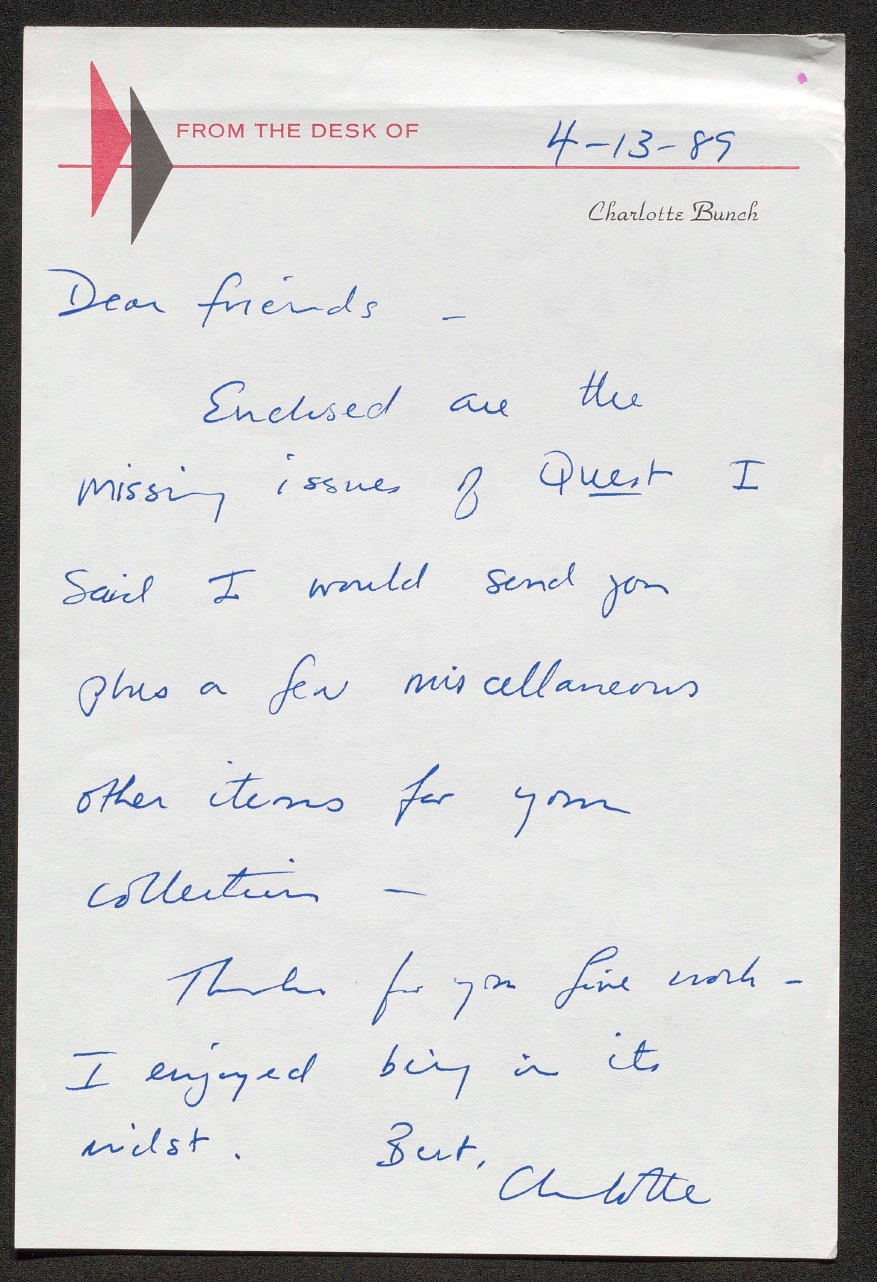 FROM THE DESK OF 4-13-89
Charlotte Bunch
Dear friends -
Enclosed are the
missing issues of Quest I
Said I would send you
plus a few miscellaneous
other items for your
collection -
Thanks for your fine work -
I enjoyed being in its
midst. Best,
Charlotte